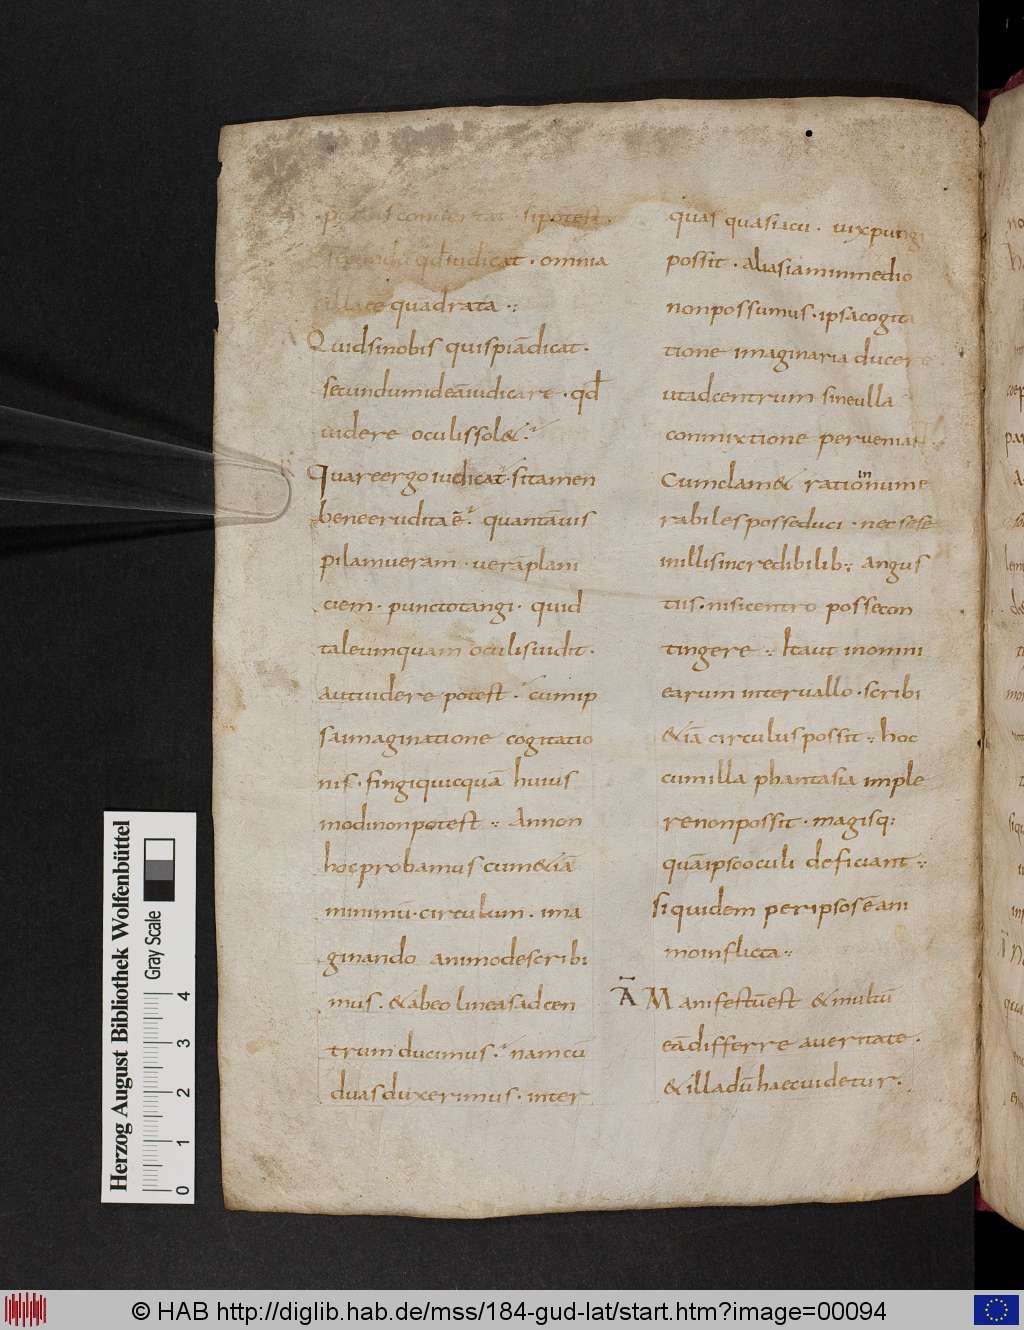 conuertat · si potest ·
qđ iudicat · omnia
quadrata ·:
Quid si nobis quispiā dicat ·
secundum ideā iudicare · qđ
uidere oculis sol& ·
Quare ergo iudicat · si tamen
bene erudita ē · quantāuis
pilam ueram · ueră plani
ciem · puncto tangi · quid
tale umquam oculis uidit ·
aut uidere potest · cum ip
sa imaginatione cogitatio
nis · fingi quicquā huius
modi non potest ·: Annon
hoc probamus cum &iā
minimū · circulum · ima
ginando animo describi
mus · & ab eo lineas ad cen
trum ducimus · nam cū
duas duxerimus · inter
quas quasi acu · uix pungi
possit · alias iam in medio
non possumus · ipsa cogita
tione imaginaria ducere
ut ad centrum sine ulla
commixtione perueniant ·
Cum clam& ratio innume
rabiles posse duci · nec sese
in illis incredibilib; angus
tiis · nisi centro posse con
tingere ·: Ita ut in omni
earum interuallo · scribi
&iā circulus possit ·: hoc
cum illa phantasia imple
re non possit · magisq:
quā ipsi oculi deficiant ·:
si quidem per ipsos ē ani
mo inflicta ·:
A Manifestū est & multū
eā differre a ueritate ·
& illa dū haec uidetur ·
Herzog August Bibliothek Wolfenbüttel
Gray Scale
0 1 2 3 4
© HAB http://diglib.hab.de/mss/184-gud-lat/start.htm?image=00094